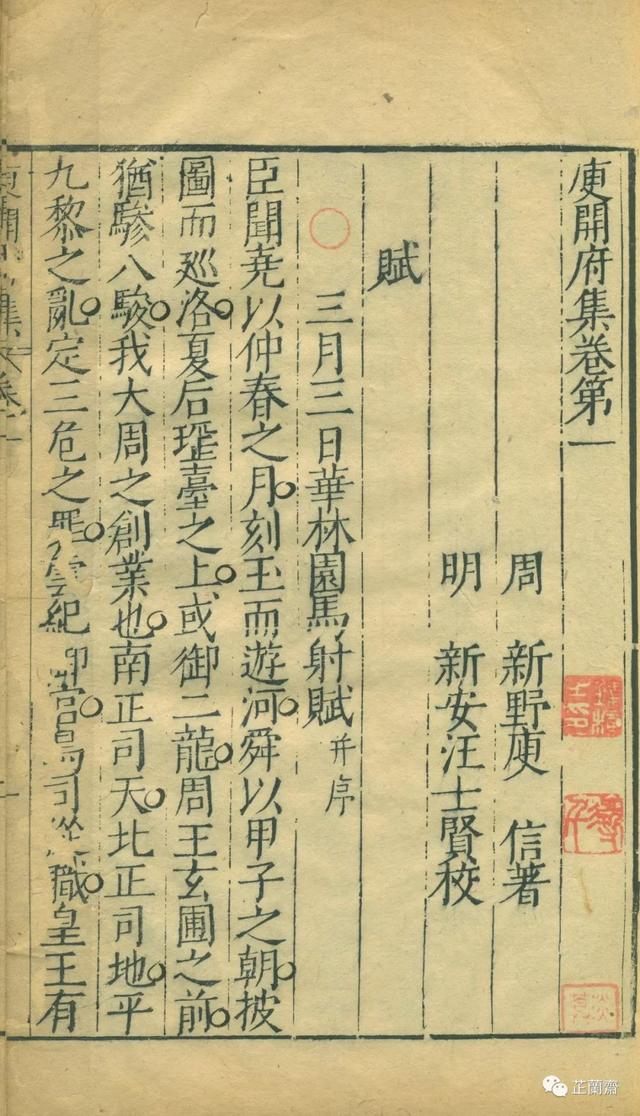 庾開府集卷第一
周 新野庾 信著
明 新安汪士賢校
賦
三月三日華林園馬射賦并序
臣聞堯以仲春之月刻玉而遊河舜以甲子之朝披
圖而巡洛夏后瑶臺之上或御二龍周王玄圃之前
猶驂八駿我大周之創業也南正司天北正司地平
九黎之亂定三危之罪雲紀御官鳥司從職皇王有
芷蘭齋